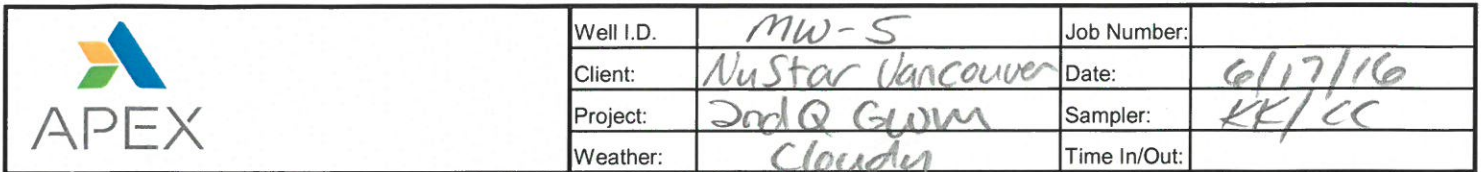 Well I.D. MW-5 Job Number:
Client: NuStar Vancouver Date: 6/17/16
Project: 2nd Q GWM Sampler: KK/CC
Weather: Cloudy Time In/Out:
APEX